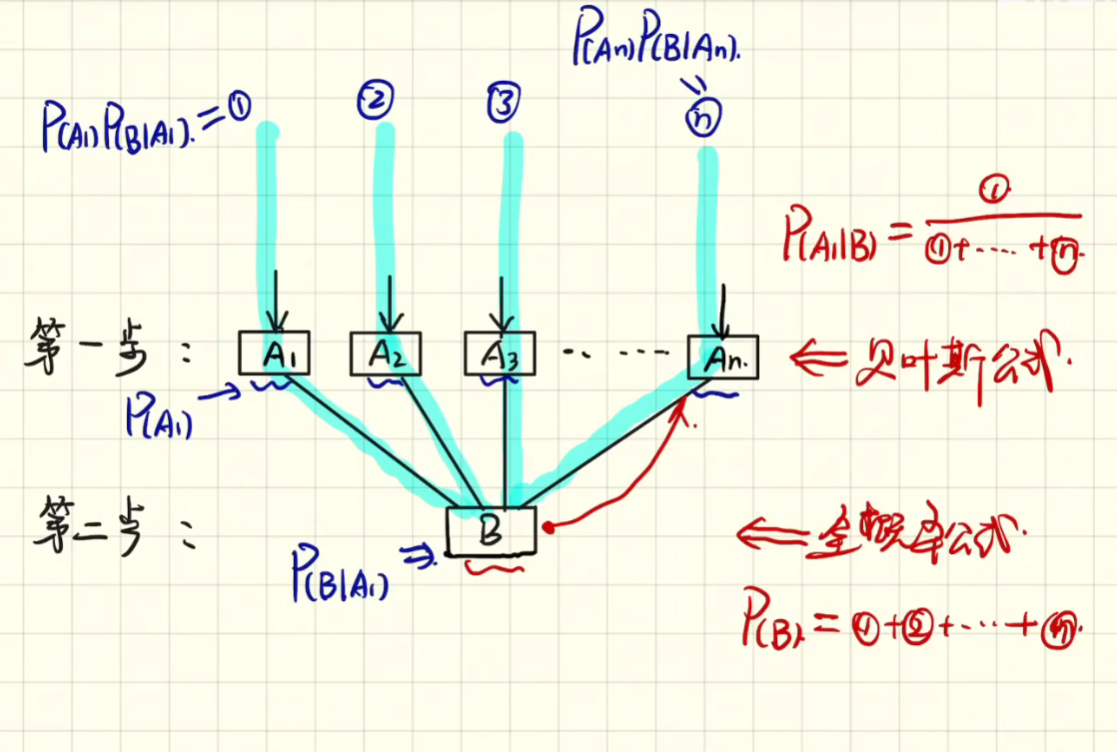 P(An)P(B|An).
P(A1)P(B|A1). = ① ② ③ ⓝ
P(A1|B) = ① / ①+……+ⓝ.
第一步： A1 A2 A3 …… An. ⇐ 贝叶斯公式.
P(A1) →
第二步： B ⇐ 全概率公式.
P(B|A1) ⇒
P(B) = ①+②+……+ⓝ.